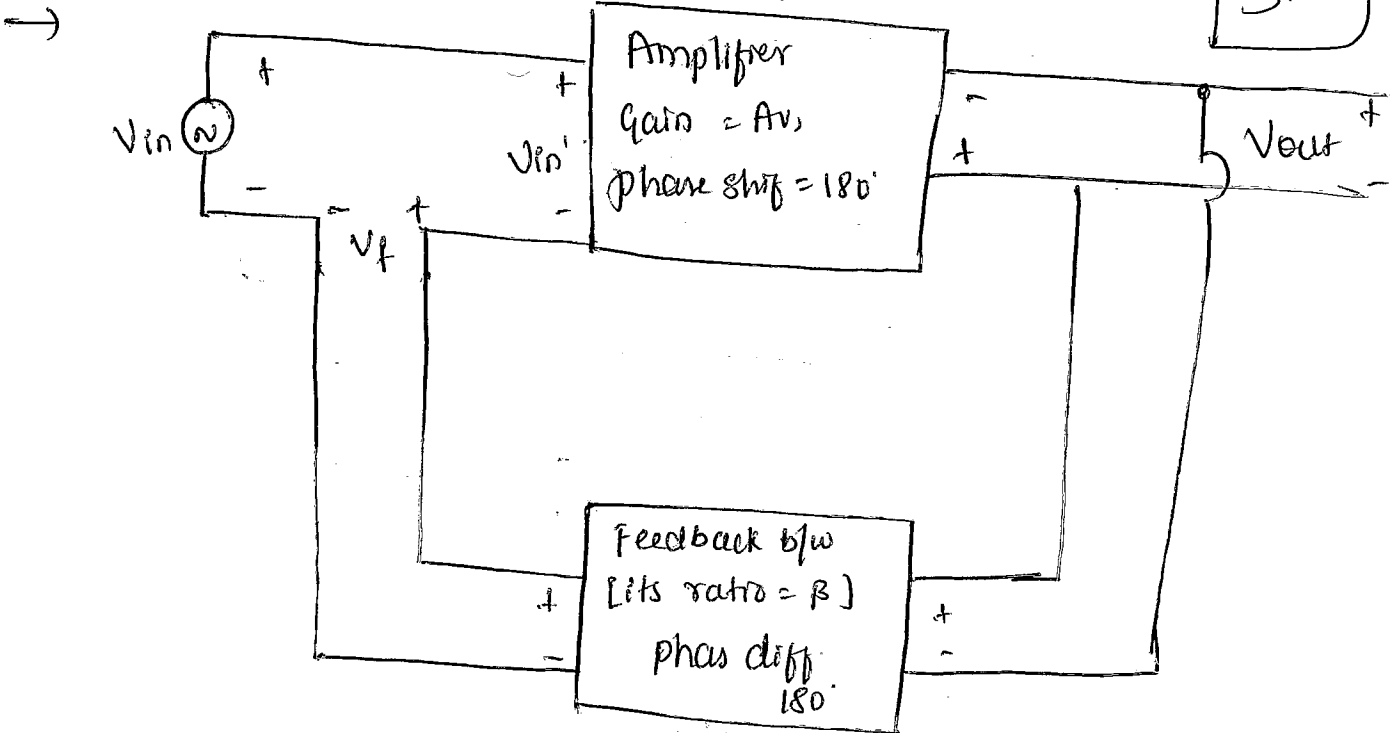 Amplifier
Gain = Av,
phase shif = 180°
Vin
+
-
+
Vin'
-
-
+
+
Vout
-
-
Vf
+
Feedback b/w
[its ratio = β]
phas diff
180°
+
-
+
-